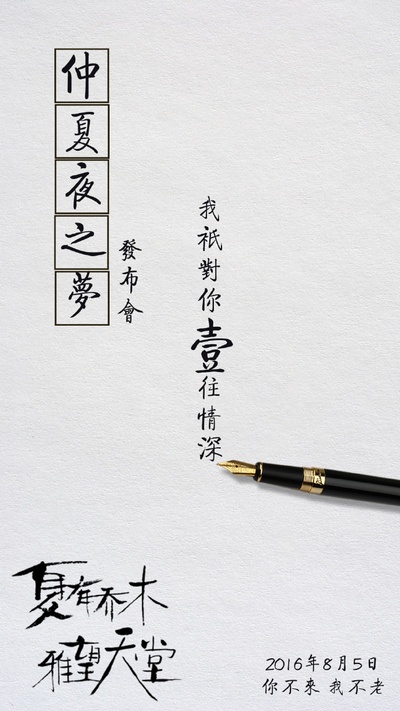 仲夏夜之夢
發布會
我祇對你壹往情深
夏有乔木
雅望天堂
2016年8月5日
你不來 我不老